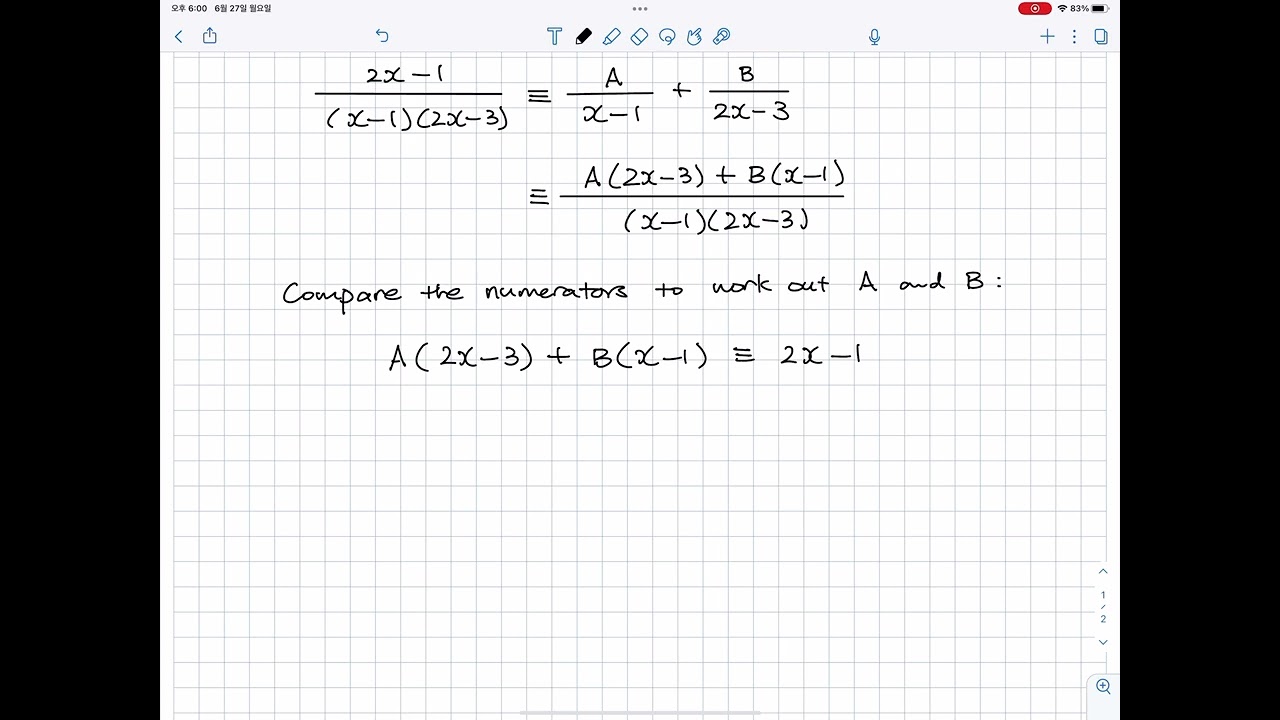 오후 6:00 6월 27일 월요일 83%
2x-1 / (x-1)(2x-3) ≡ A / x-1 + B / 2x-3
≡ A(2x-3) + B(x-1) / (x-1)(2x-3)
Compare the numerators to work out A and B:
A(2x-3) + B(x-1) ≡ 2x-1
1
/
2